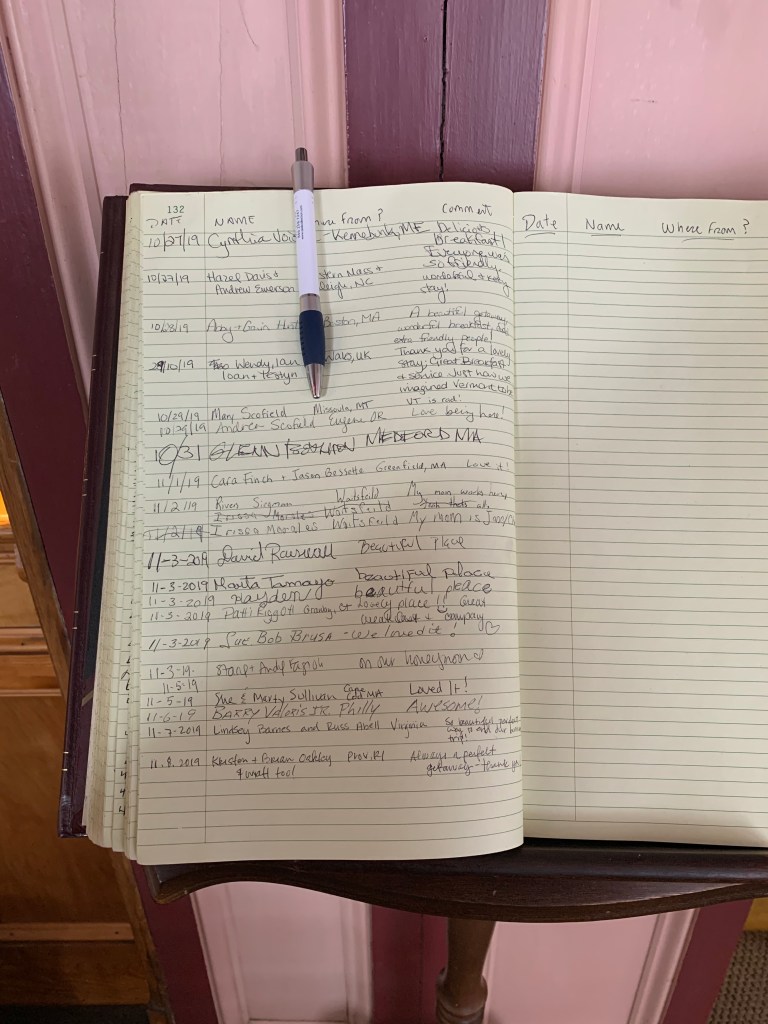 132
DATE NAME From? Comment
10/27/19 Cynthia Kennebunk, ME Delicious
Breakfast!
Everyone was
so friendly
10/27/19 Hazel Davis + Mass + wonderful
Andrew Emerson NC stay!
10/28/19 Boston, MA A beautiful getaway
wonderful breakfast,
extra friendly people!
29/10/19 Wendy, Ian Wales, UK Thank you for a lovely
Ioan + stay, Great Breakfast
+ service Just how we
imagined Vermont to be
10/29/19 Mary Scofield Missoula, MT VT is rad!
10/29/19 Andrew Scofield Eugene OR Love being here!
10/31 GLENN MEDFORD MA
11/1/19 Cara Finch + Jason Bessette Greenfield, MA Love it!
11/2/19 Waitsfeild My mom works here
Irissa Morales Waitsfeild
11/2/19 Irissa Morales Waitsfeild My mom is
11-3-2019 David Beautiful Place
11-3-2019 Marta Tamayo beautiful place
11-3-2019 Hayden beautiful place
11-3-2019 Patti Granby, Ct Lovely place!! Great
breakfast + company
11-3-2019 Sue Bob - We loved it!
11-3-19 Andy on our honeymoon
11-5-19
11-5-19 Sue & Marty Sullivan MA Loved It!
11-6-19 BARRY Philly Awesome!
11-7-2019 Lindsey Barnes and Russ Abell Virginia So beautiful perfect
way to end our
trip!
11.8.2019 Kristen + Brian Oakley Prov, RI Always a perfect
getaway - thank you
Date Name Where From?